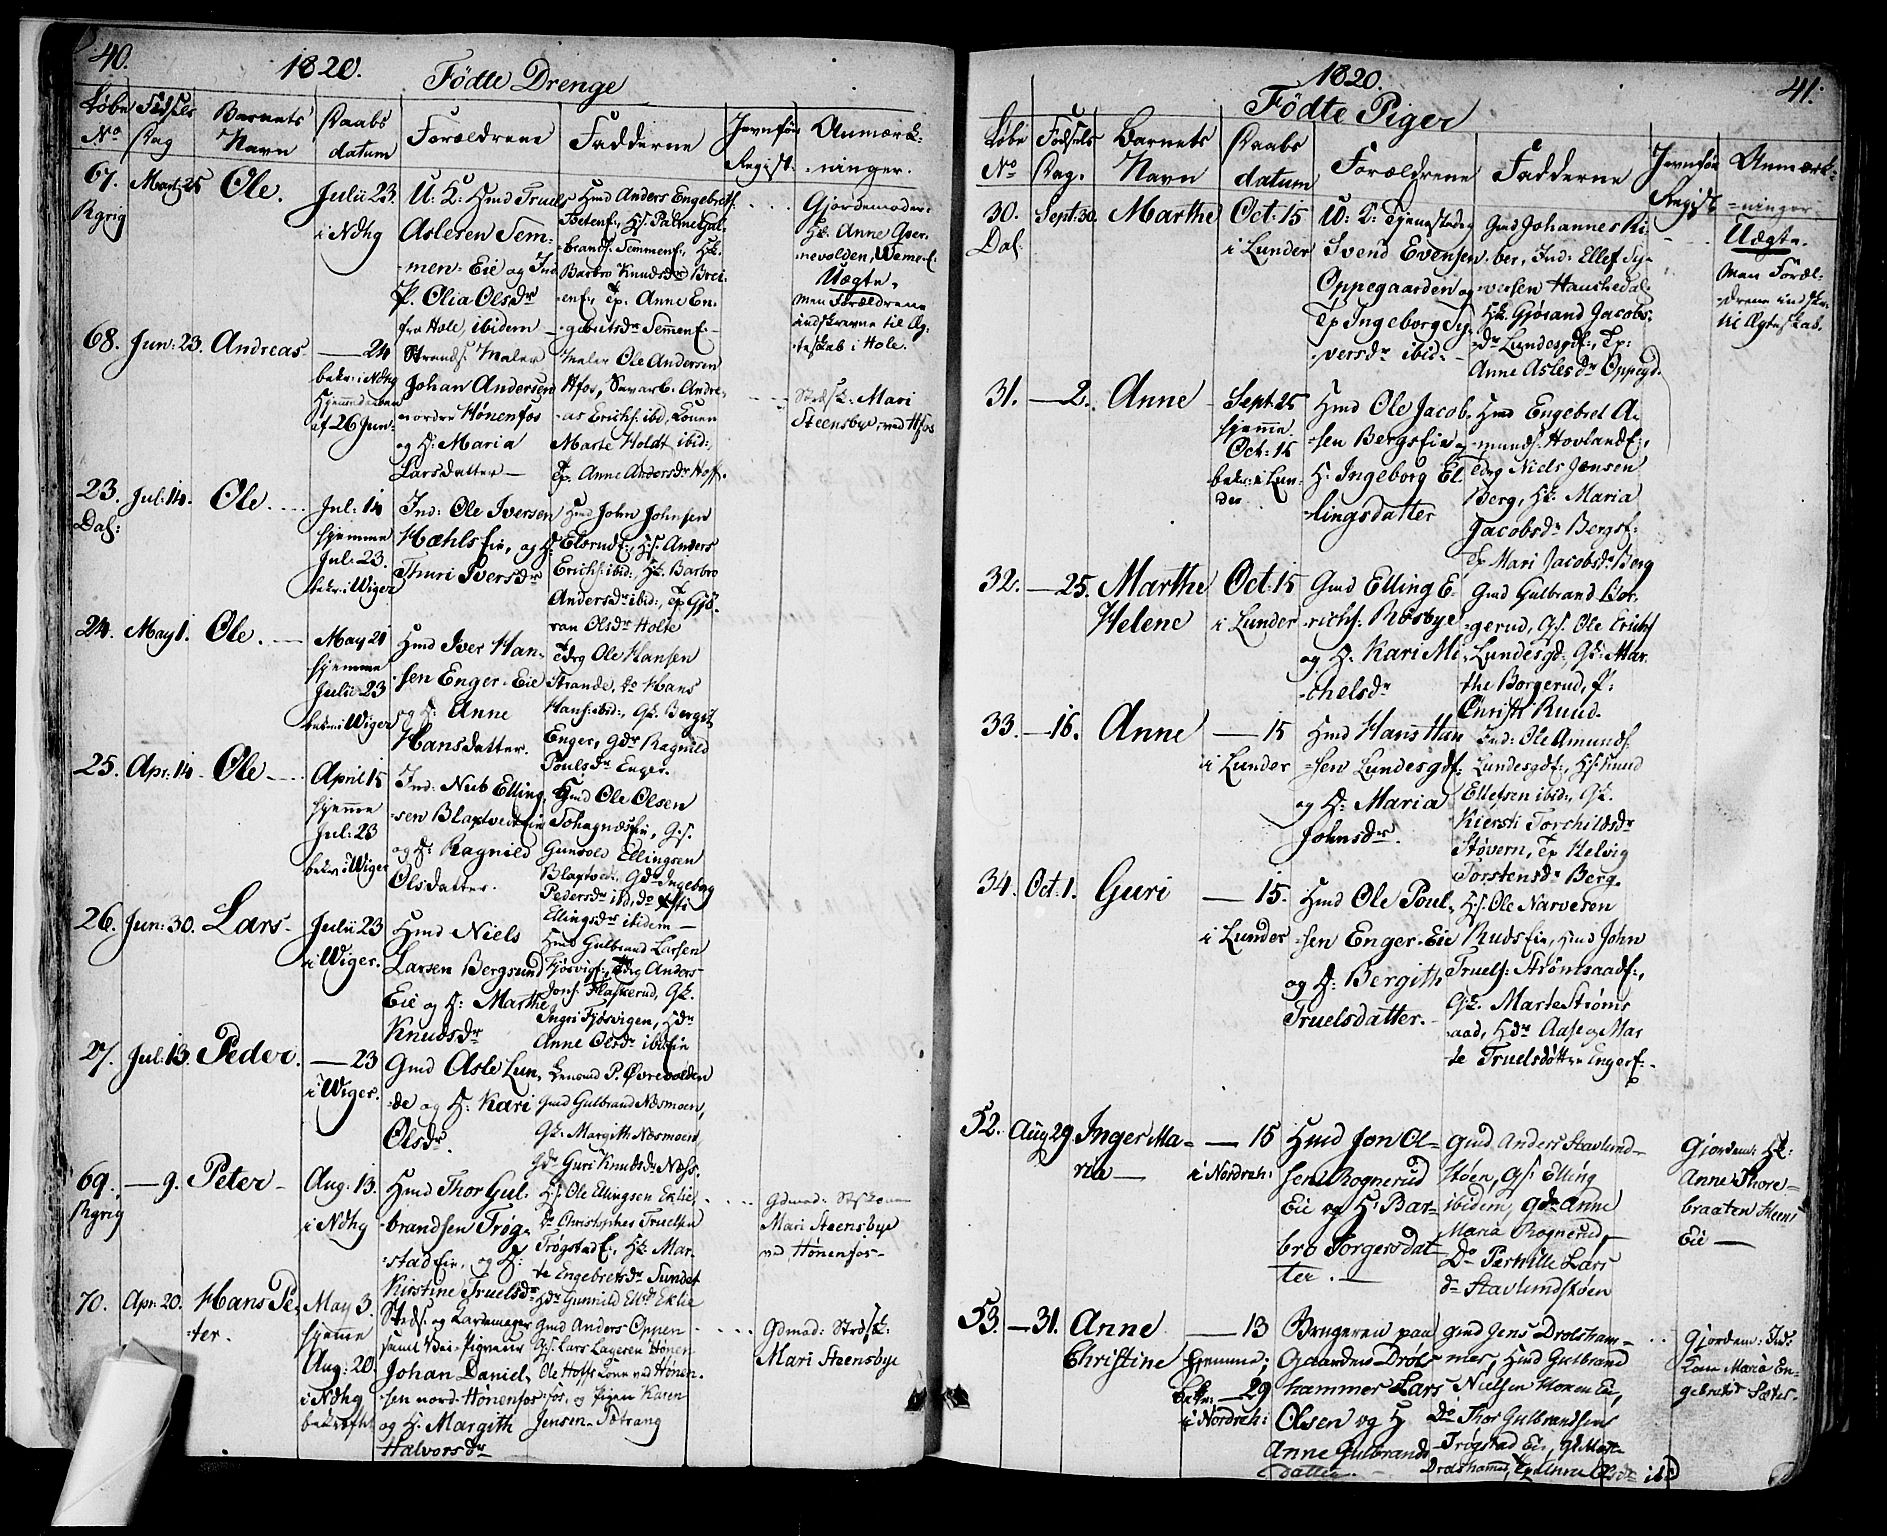 40.
1820.
Födte Drenge
Löbe No
Födsels Dag
Barnets Navn
Daabs datum
Forældrene
Fadderne
Jevnför Regist.
Anmærkninger.
67. Ngrig
Mart: 25
Ole.
Julii 23.
i Ndhg
U: K: Hmd Truels
Aslesen Sem-
-men-Eie og Ind
P. Olia Olsdr
fra Hole, ibidem
Hmd Anders Engebretf:
Barbro Knudsdr Brei-
-enf:, Tp: Anne En-
-gebretsdr Semmenf.
Gjordemoder:
Uægte,
men Forældrene
indskrevne til Æg-
-teskab i Hole.
68. Jun: 23. Andreas
— 24
bekr: i Ndhg
Hjemmedøbt
af 26 Jun:
Johan Andersen
nordre Hönenfos
og H: Maria
Larsdatter —
Maler Ole Andersen
Hfos, Svarb: Andre-
as Erichs: ibid, Konen
Marte Holdt ibid:
Tp. Anne Andersdr Hoff.
Mari
Steensbye, ved Hfos
23. Dal:
Jul: 14.
Ole.
Jul: 14
hjemme
Jul: 23.
bekr: i Wiger
Ind: Ole Iversen
Hæhlsfie, og H:
Thuri Iversdr
Hmd John Johnsen
Elsrudf:, Hs: Anders
Erichs: ibid: Hk. Barbro
Andersdr ibid:, Tp Gjö-
ran Olsdr Holte
24. May 1. Ole.
May 21
hjemme
Julii 23
bekr: i Wiger
Hmd Iver Han-
sen Enger-Eie
og H: Anne
Hansdatter.
Tdrg Ole Hansen
Strande, Do Hans
Hans: ibid:, Gk: Bergit
Enger, Gdr Ragnild
Poulsdr Enger.
25. Apr: 14 - Ole
April 15
hjemme
Jul: 23
bekr: i Wiger
Ind: Nub Elling-
-sen Blaxtvedt Eie
og H: Ragnild
Olsdatter.
Hmd Ole Olsen
Gunvold Ellingsen
Blaxtvedt, Gdr Ingeborg
Pedersdr ibd, do
Ellingsdr ibidem —
26. Jun: 30. Lars -
Julii 23
i Wiger.
Hmd Niels
Larsen Bergsund
Eie og H: Marthe
Knudsdr
Hmd Gulbrand Larsen
Fjösvigf:, Tdrg Anders
Jons: Flaskerud, Gk.
Ingri Fjösvigen, Hdr
Anne Olsdr ibd Eie
27. Jul: 13 Peder.
— 23
i Wiger.
Gmd Asle Lun-
-de og H: Kari
Olsdr.
Lensmd P. Øvrevolden
Gmd Gulbrand Næsmoen,
Gk: Margith Næsmoen,
Gdr Guri Knudsdr Næss.
69. Ngrig
— 9. Peter -
Aug: 13.
i Ndhg
Hmd Thor Gul-
brandsen Trög-
-stad Eie, og H:
Kirstine Truelsdr
Hs: Ole Ellingsen Eklie
do Christopher Truelsen
Trögstad E:, Hk: Mar-
te Engebretsdr Sundet
Hdr Gunnild Ellsdr Eklie
Mari Steensbye
ved Hönenfos-
70. Apr: 20. Hans Pe-
-ter.
May 3.
hjemme
Aug: 20.
i Ndhg
bekræftet
Johan Daniel-
sen nord-Hönenfos
og H. Margith
Halvorsdr
Gmd Anders Oppen
Gs: Lars Lageren Hönen-
Ole Hoffs Kone ved Hönen-
fos, og Pigen Karen
Jensen-Sætrang
Gdmod:
Mari Steensbye
1820.
41.
Födte Piger
Löbe No
Födsels Dag.
Barnets Navn
Daabs datum
Forældrene
Fadderne
Jevnför Regist
Anmærk-
-ninger
30. Dal:
Sept: 30. Marthe
Oct: 15
i Lunder
U: K: Tjenestedrg
Svend Evensen
Oppegaarden og
Tp Ingeborg Sy-
-versdr ibid: -
Gmd Johannes Ri-
ber, Ind: Ellef Sy-
-versen Haushedal
Hk. Gjörand Jacobs-
-dr Lundesgdf:, Tp:
Anne Aslesdr Oppegd.
Uægte.
Men Foræl-
-drene indskr:
til Ægteskab.
31. — 2. Anne
Sept: 25
hjemme
Oct: 15
bekr: i Lun-
der
Hmd Ole Jacob-
-sen Bergsfie og
H. Ingeborg El-
lingsdatter
Hmd Engebret A-
-munds: Hovlandf:,
Tdrg Niels Jonsen
Berg, Hk: Maria
Jacobsdr Bergsf:
Tp Mari Jacobsdr Berg
32. — 25. Marthe
Helene
Oct: 15
i Lunder
Gmd Elling E-
richs: Rösbye
og H: Kari Mi-
-chelsdr
Gmd Gulbrand Bor-
-gerud, Gs: Ole Erichs
Lundesgd: Gk: Mar-
the Borgerud, P:
Christi Ruud.
33. — 16. Anne
— 15
i Lunder
Hmd Hans Han
-sen Lundesgdf:
og H: Maria
Johnsdr.
Ind: Ole Amunds:
Lundesgdf:, Hs: Knud
Ellefsen ibid:, Gk.
Kiersti Torchildsdr
Støvern, Tp Helvig
Torstensdr Berg.
34. Oct: 1. Guri
— 15.
i Lunder
Hmd Ole Poul-
-sen Enger-Eie
og H: Bergith
Truelsdatter.
Hs: Ole Narveren
Rudsfie, Hmd John
Truels: Strömsaadf:,
Gk. Marte Ströms
aad, Hdr Aase og Mar-
te Truelsdöttre Engerf:
52. Aug 29. Inger Ma-
ria —
— 15
i Nordrah:
Hmd Jon Ol-
sen Rognerud
Eie og H: Bar-
bro Torgersdat-
ter. —
Gmd Anders Stavlund-
stöen, Gs: Elling
ibidem, Gdr Anne
Maria Rognerud,
Do Pernille Lars
dr Stavlundstöen
Gjordem: Hk:
Anne Thore-
braaten Steens
Eie —
53. — 31. Anne
Christine
— 13
hjemme;
bekr: — 29
i Nordrah:
Brugeren paa
Gaarden Drols
hammer Lars
Olsen og H.
Anne Gulbrands
datter.
Gmd Jens Drolsham-
mer, Hmd Gulbrand
Nielsen Honen Eie,
Do Thor Gulbrandsens
Trögstad Eie, Gk Marte
Drolshammer, Tp Anne Olsdr ibd
Gjordem: Ind:
Kone Maria En-
gebretsdr Sæter.